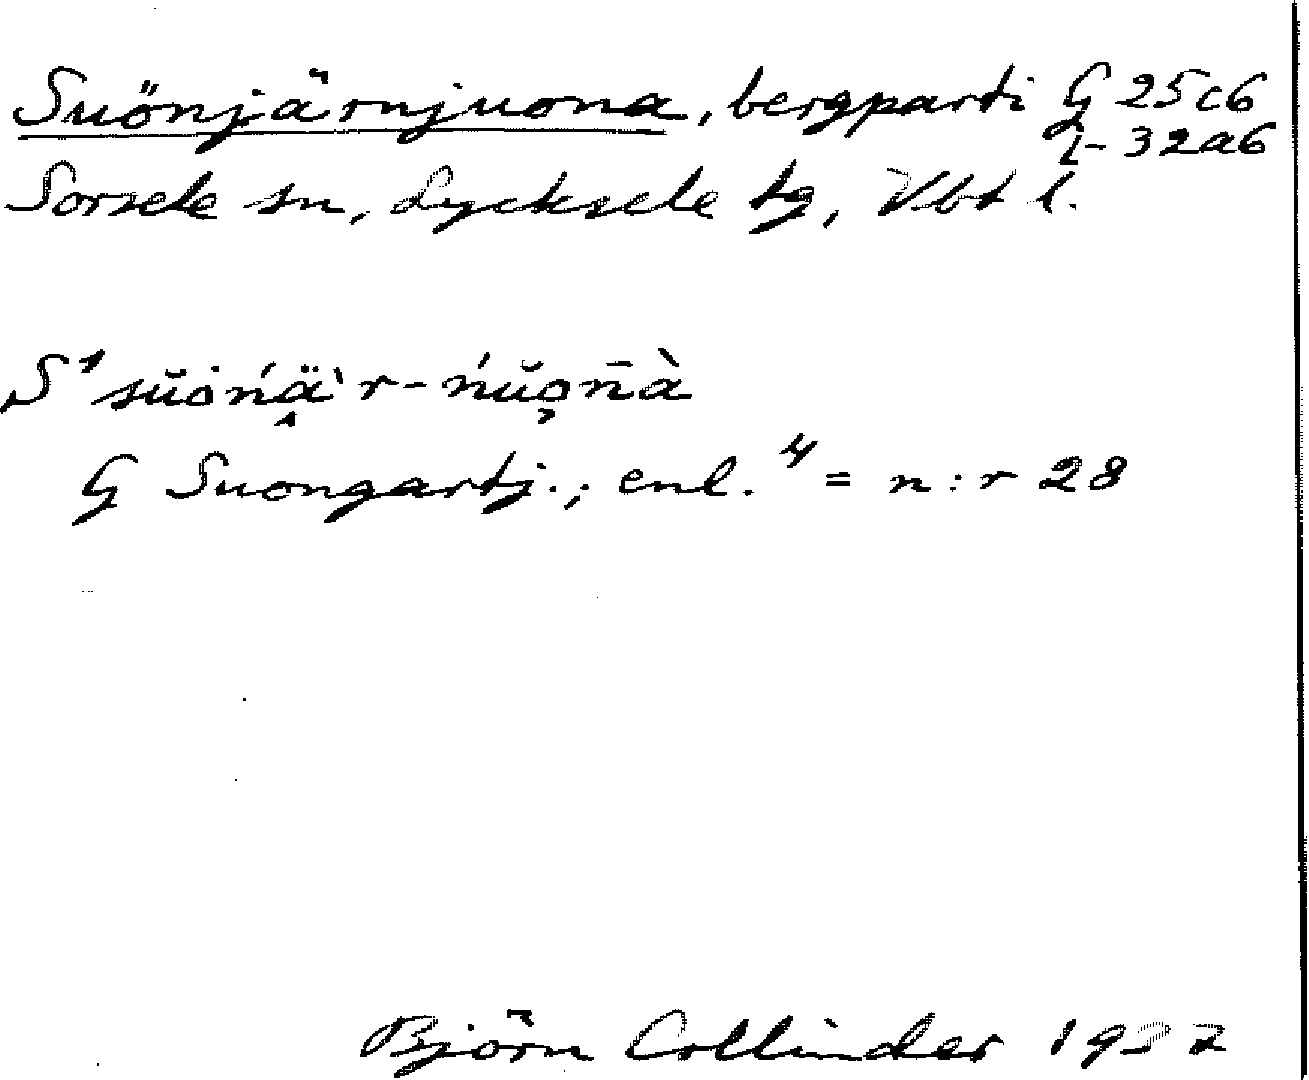 Suönjärnjuona, bergparti G 25c6
I- 32a6
Sorsele sn, Lycksele tg, Vbt l.
S¹ sŭȯńä̭̀r-ńŭo̧n̄à
G Suongartj.; enl. ⁴ = n:r 28
Björn Collinder 1937